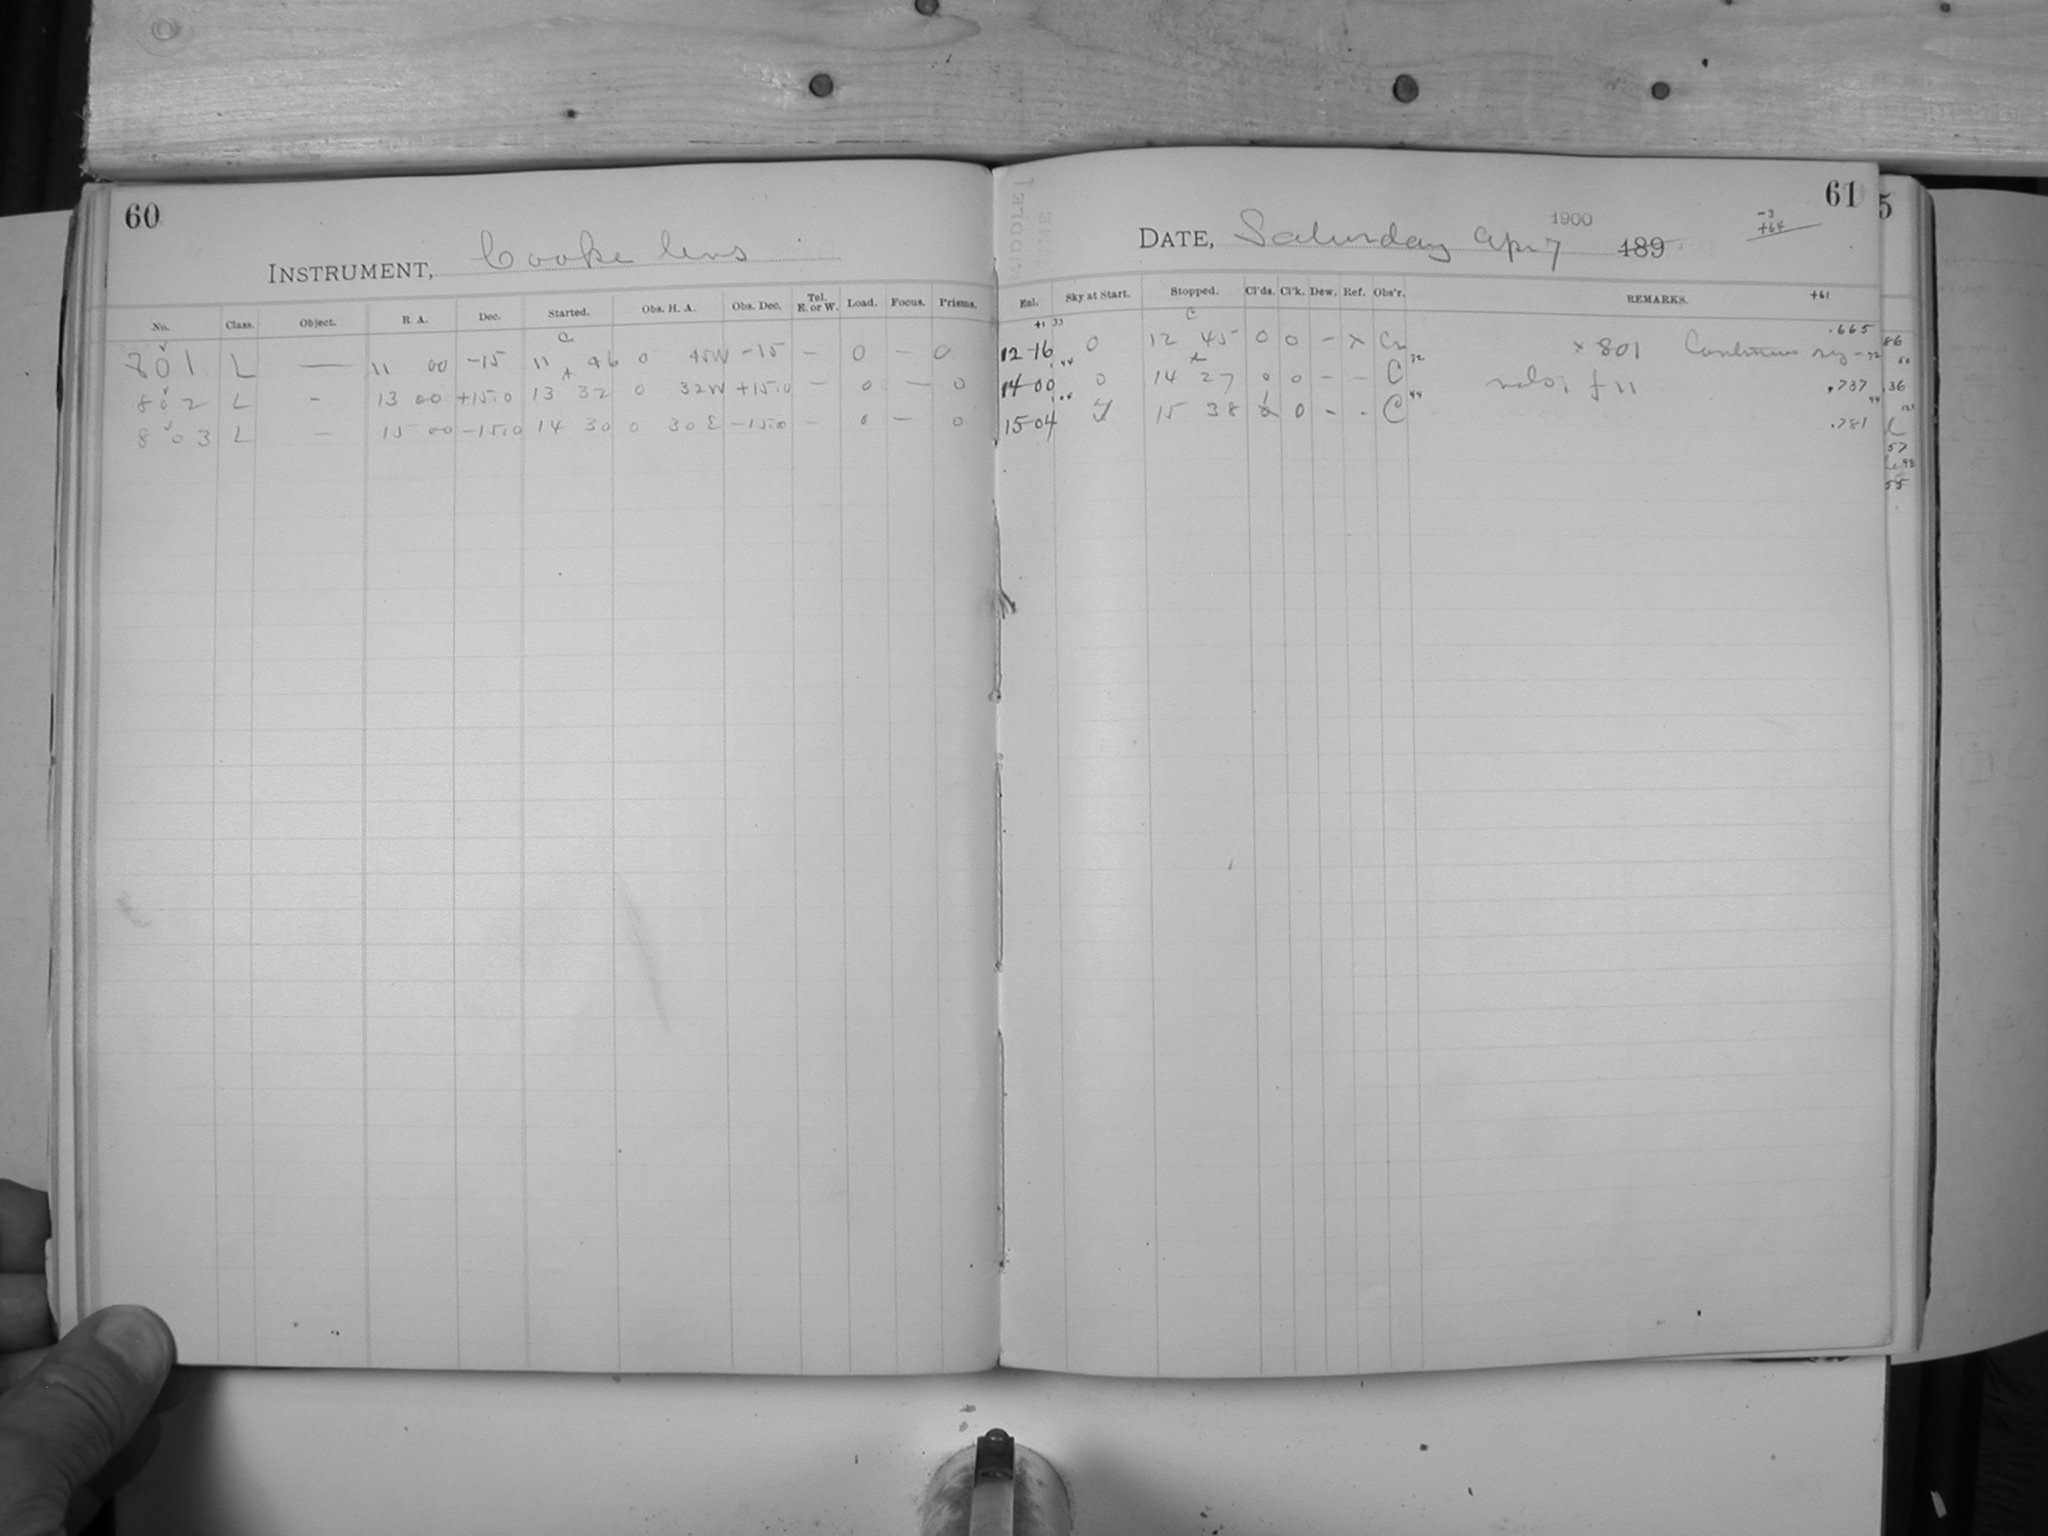 60
INSTRUMENT, Cooke lens
No. Class. Object. R. A. Dec. Started. Obs. H. A. Obs. Dec. Tel. E. or W. Load. Focus. Prisms.
801 L — 11 00 -15 11 46 0 45W -15 — 0 — 0
802 L - 13 00 +15.0 13 32 0 32W +15.0 — 0 — 0
803 L — 15 00 -15.0 14 30 0 30E -15.0 — 0 — 0
MIDDLE
TIME
61
1900
-3
+64
DATE, Saturday Apr 7 189
Enl. Sky at Start. Stopped. Cl'ds. Cl'k. Dew. Ref. Obs'r. REMARKS. +61
12-16 0 12 45 0 0 - x × 801 Continuous .665
14-00 0 14 27 0 0 - - C .737
15-04 15 38 0 - - C .781
5
86
36
57
55